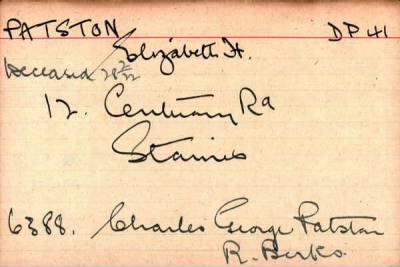 PATSTON Elizabeth H. DP 41
Deceased 28/2/22
12. Centuary Rd
Staines
6388. Charles George Patston
R. Berks.